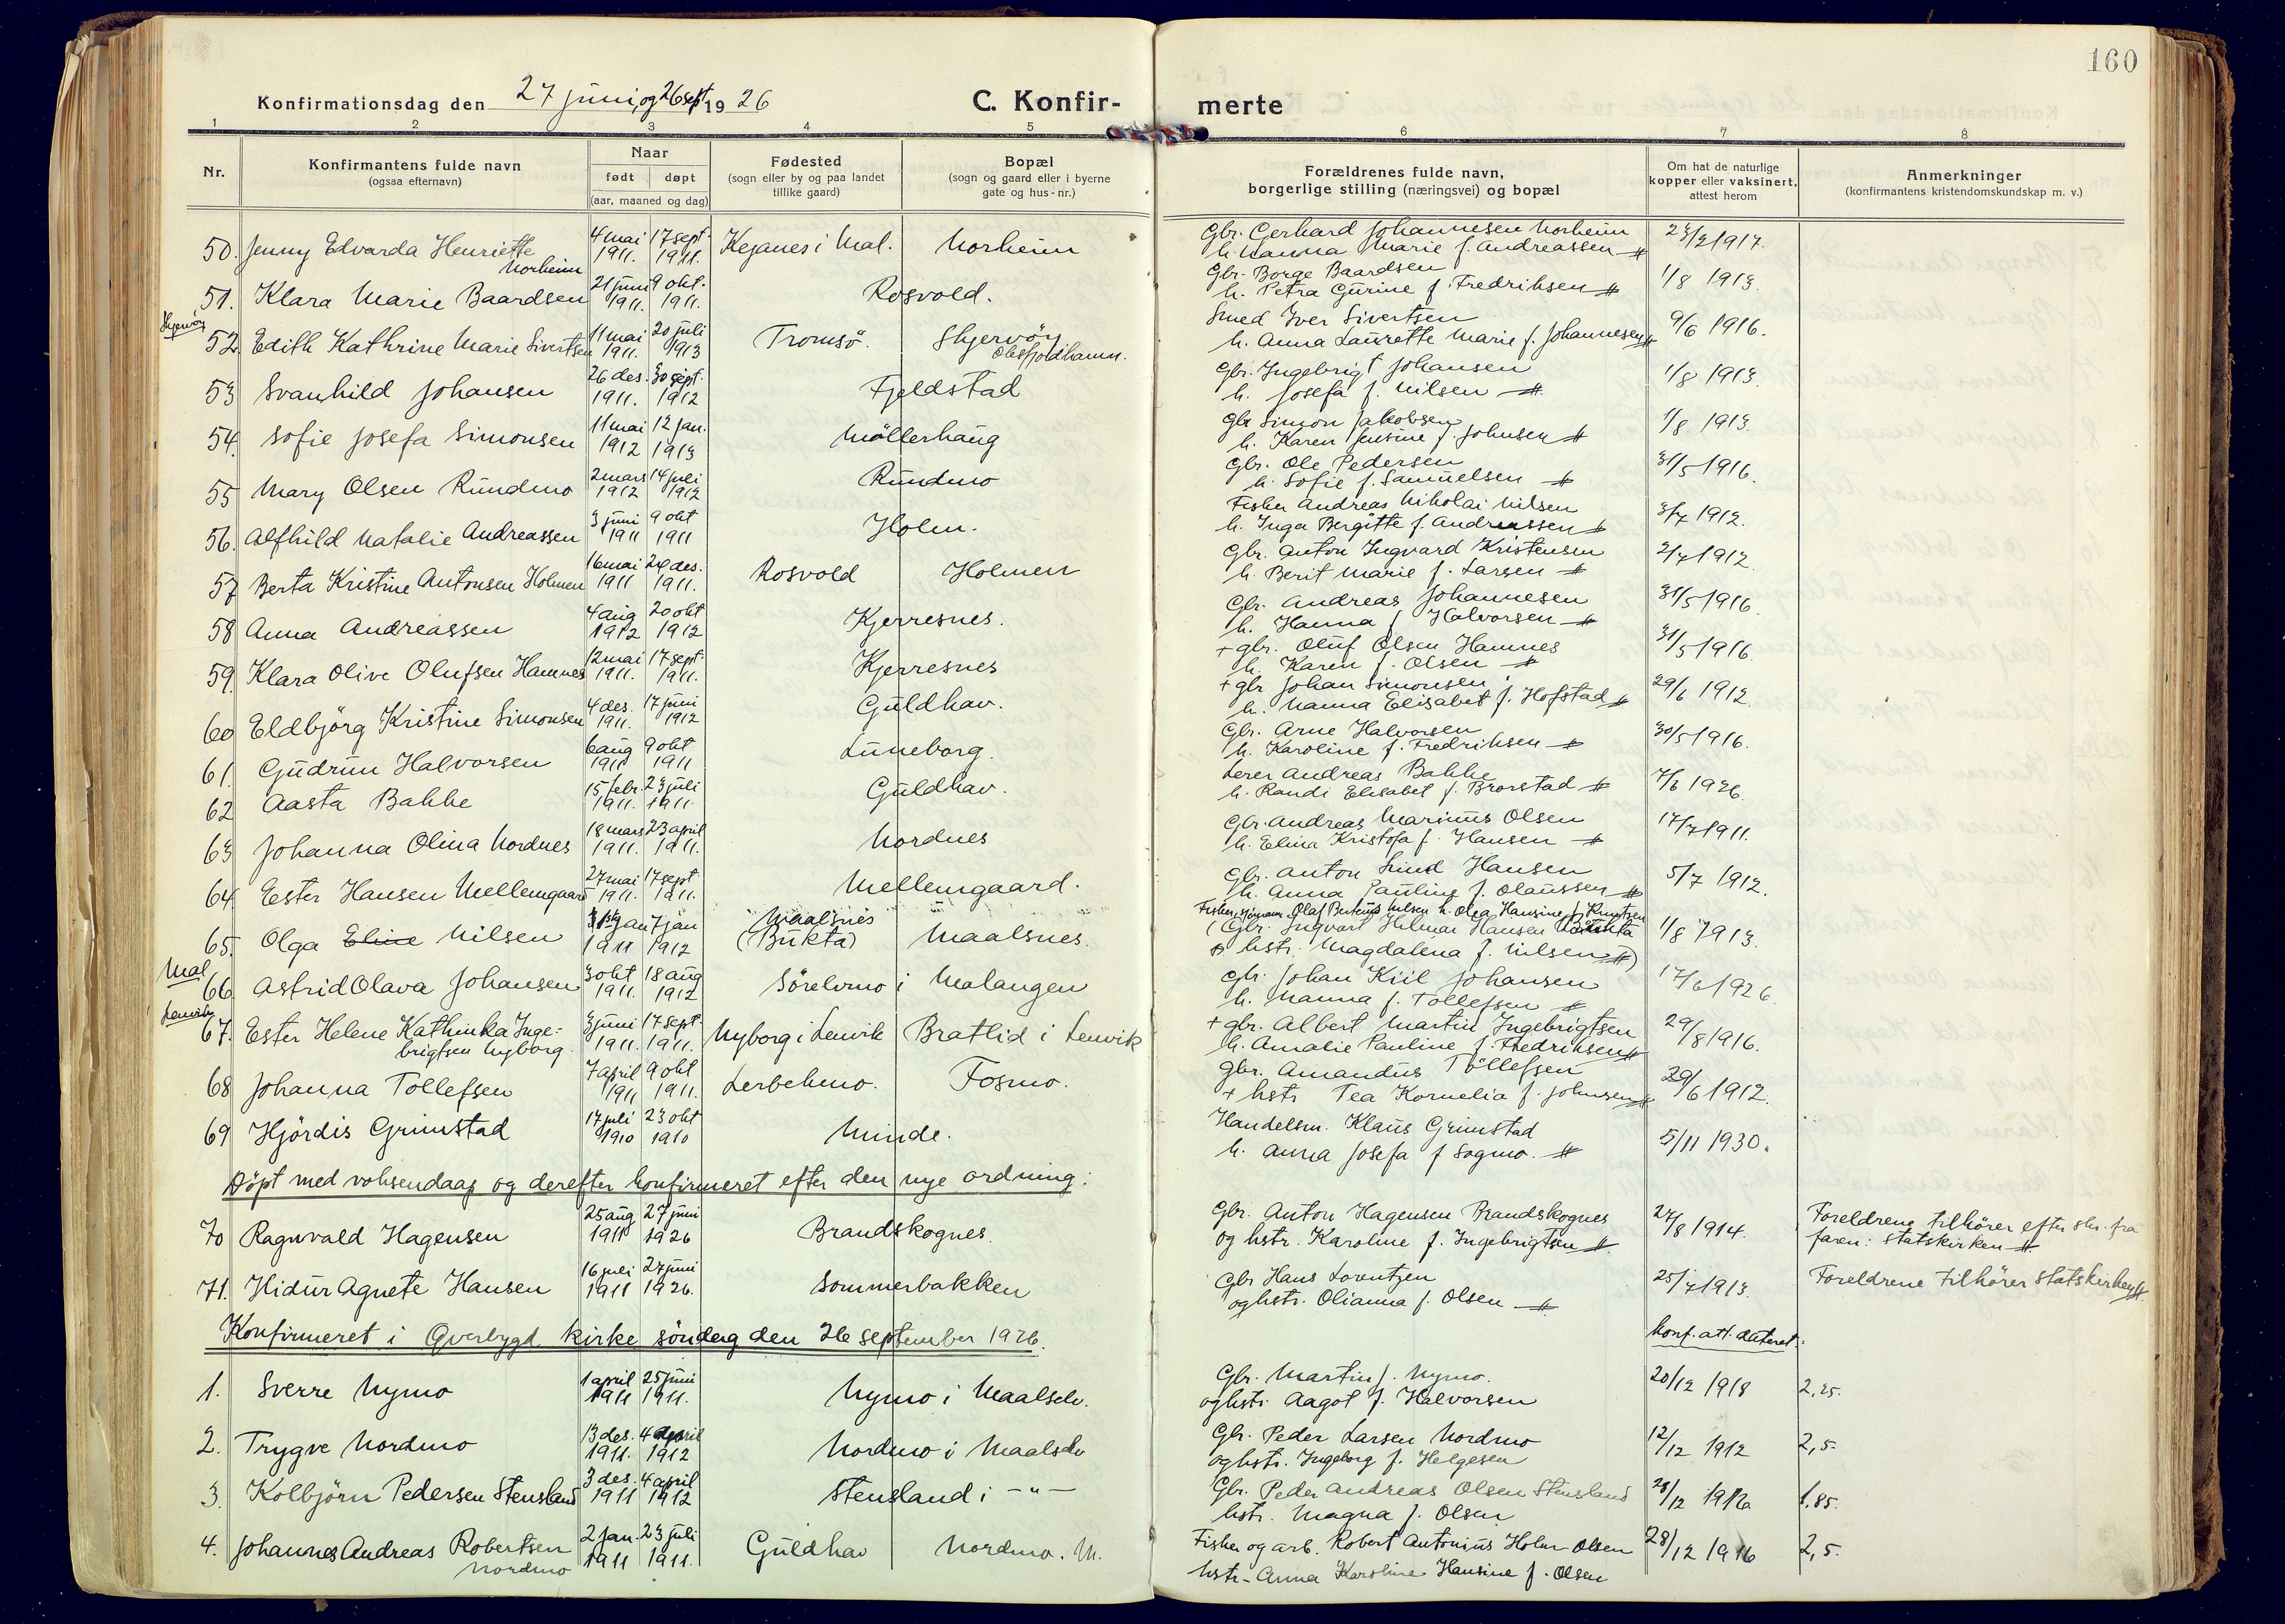 160
Konfirmationsdag den 27 juni og 26 sept 1926
C. Konfirmerte
1 2 3 4 5 6 7 8
Nr.
Konfirmantens fulde navn
(ogsaa efternavn)
Naar
født døpt
(aar, maaned og dag)
Fødested
(sogn eller by og paa landet
tillike gaard)
Bopæl
(sogn og gaard eller i byerne
gate og hus-nr.)
Forældrenes fulde navn,
borgerlige stilling (næringsvei) og bopæl
Om hat de naturlige
kopper eller vaksinert,
attest herom
Anmerkninger
(konfirmantens kristendomskundskap m. v.)
50. Jenny Edvarda Henriette Norheim 4 mai 1911. 17 sept. 1911. Kejanes i Mal. Norheim Gbr. Gerhard Johannesen Norheim
h. Nanna Marie f. Andreassen 1917.
51. Klara Marie Baardsen 21 juni 1911. 9 okt. 1911. Rosvold. Gbr. Borge Baardsen
h. Petra Gurine f. Fredriksen 1/8 1913.
Skjervöy
52. Edith Kathrine Marie Sivertsen 11 mai 1911. 20 juli 1913 Tromsö. Skjervöy Smed Iver Sivertsen
h. Anna Laurette Marie f. Johannesen 9/6 1916.
53 Svanhild Johansen 26 des. 1911. 30 sept. 1912 Fjeldstad Gbr. Ingebrigt Johansen
h. Josefa f. Nilsen 1/8 1913.
54. Sofie Josefa Simonsen 11 mai 1912 12 jan. 1913 Möllerhaug Gbr Simon Jakobsen
h. Karen Jensine f. Johnsen 1/8 1913.
55 Mary Olsen Rundmo 2 mars 1912 14 juli 1912 Rundmo Gbr. Ole Pedersen
h. Sofie f. Samuelsen 31/5 1916.
56. Alfhild Natalie Andreassen 3 juni 1911 9 okt 1911 Holm. Fisker Andreas Nikolai Nilsen
h. Inga Bergitte f. Andreassen 3/7 1912.
57 Berta Kristine Antonsen Holmen 16 mai 1911 24 des. 1911. Rosvold Holmen Gbr. Anton Ingvard Kristensen
h. Berit Marie f. Larsen 2/7 1912.
58 Anna Andreassen 4 aug 1912 20 okt 1912 Kjerresnes. Gbr. Andreas Johannesen
h. Hanna f Halvorsen 31/5 1916.
59. Klara Olive Olufsen Hamnes 12 mai 1911. 17 sept. 1911. Kjerresnes + gbr. Oluf Olsen Hamnes
h. Karen f. Olsen 31/5 1916.
60 Eldbjörg Kristine Simonsen 4 des. 1911. 17 juni 1912 Guldhav. + gbr Johan Simonsen
h. Nanna Elisabet f. Hofstad 29/6 1912.
61. Gudrun Halvorsen 6 aug 1911 9 okt 1911 Luneborg. Gbr. Arne Halvorsen
h. Karoline f. Fredriksen 30/5 1916.
62 Aasta Bakke 15 febr. 1911. 23 juli 1911. Guldhav. Lerer Andreas Bakke
h. Randi Elisabet f. Brorstad 7/6 1926.
63 Johanna Olina Nordnes 18 mars 1911. 23 april 1911. Nordnes Gbr. Andreas Marinus Olsen
h. Elina Kristofa f. Hansen 17/7 1911.
64. Ester Hansen Mellemgaard 27 mai 1911. 17 sept. 1911. Mellemgaard. Gbr. Anton Lind Hansen
h. Anna Pauline f. Olaussen 5/7 1912.
65. Olga Eline Nilsen jan 1911 7 jan 1912 Maalsnes (Bukta) Maalsnes. Olaf Berteus Nilsen h. Olea Hansine f. Knutsen
(Gbr. Ingvart Hilmar Hansen
hstr. Magdalena f. Nilsen) 1/8 1913.
Mal
66. Astrid Olava Johansen 3 okt 1911. 18 aug 1912 Sörelvmo i Malangen Gbr. Johan Kiil Johansen
h. Nanna f. Tollefsen 17/6 1926.
Lenvik
67. Ester Helene Kathinka Inge-
brigtsen Nyborg 3 juni 1911. 17 sept. 1911. Nyborg i Lenvik Bratlid i Lenvik + gbr. Albert Martin Ingebrigtsen
h. Amalie Pauline f. Fredriksen 29/8 1916.
68 Johanna Tollefsen 7 april 1911 9 okt 1911. Lerbekmo. Fosmo. Gbr. Amandus Tollefsen
+ hstr Tea Kornelia f. Johnsen 29/6 1912.
69 Hjördis Grimstad 17 juli 1910 23 okt 1910 Minde. Handelsm. Klaus Grimstad
h. Anna Josefa f Sogmo. 5/11 1930.
Döpt med voksendaap og derefter konfirmeret efter den nye ordning:
70 Ragnvald Hagensen 25 aug 1911 27 juni 1926 Brandskognes. Gbr. Anton Hagensen Brandskognes
og hstr. Karoline f. Ingebrigtsen 27/8 1914. Foreldrene tilhörer efter skr. fra
faren: statskirken
71. Hidur Agnete Hansen 16 juli 1911 27 juni 1926. Sommerbakken Gbr Hans Lorentzen
og hstr. Olianna f. Olsen 25/7 1913. Foreldrene tilhörer statskirken
Konfirmeret i Överbygd kirke söndag den 26 september 1926. konf. att. dateret:
1. Sverre Nymo 1 april 1911 25 juni 1911. Nymo i Maalselv. Gbr. Martin J. Nymo.
og hstr. Aagot f. Halvorsen 20/12 1918 2,25.
2. Trygve Nordmo 13 des. 1911. 4 april 1912 Nordmo i Maalselv Gbr. Peder Larsen Nordmo
og hstr. Ingeborg f. Helgesen 12/12 1912 2,5.
3. Kolbjörn Pedersen Stensland 3 des. 1911 4 april 1912 Stensland i -"- Gbr. Peder Andreas Olsen Stensland
hstr. Magna f. Olsen 28/12 1916 1,85.
4. Johannes Andreas Robertsen
Nordmo 2 jan. 1911 23 juli 1911. Guldhav Nordmo. M. Fisker og arb. Robert Antonius Holm-Olsen
hstr- Anna Karoline Hansine f. Olsen 28/12 1916 2,5.